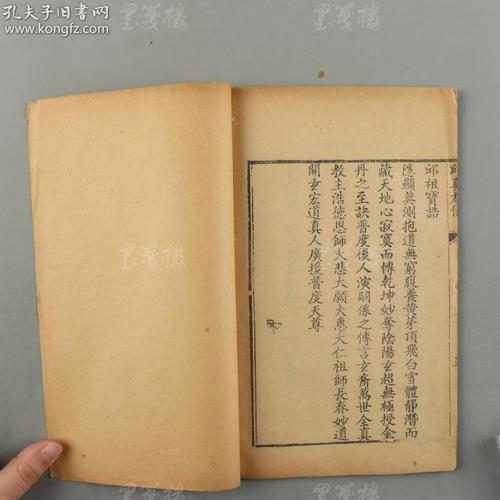 孔夫子旧书网
www.kongfz.com
邱祖寶誥
隱顯莫測抱道無窮腹養黃芽頂飛白雪體靜潛而
藏天地心寂寞而轉乾坤妙奪陰陽玄超無極授金
丹之至訣普度後人演嗣係之傳言玄裔萬世全真
教主浩德恩師大悲大願大惠大仁祖師長春妙道
開玄宏道真人廣援普度天尊
墨笺楼
墨笺楼
墨笺楼
墨笺楼
墨笺楼